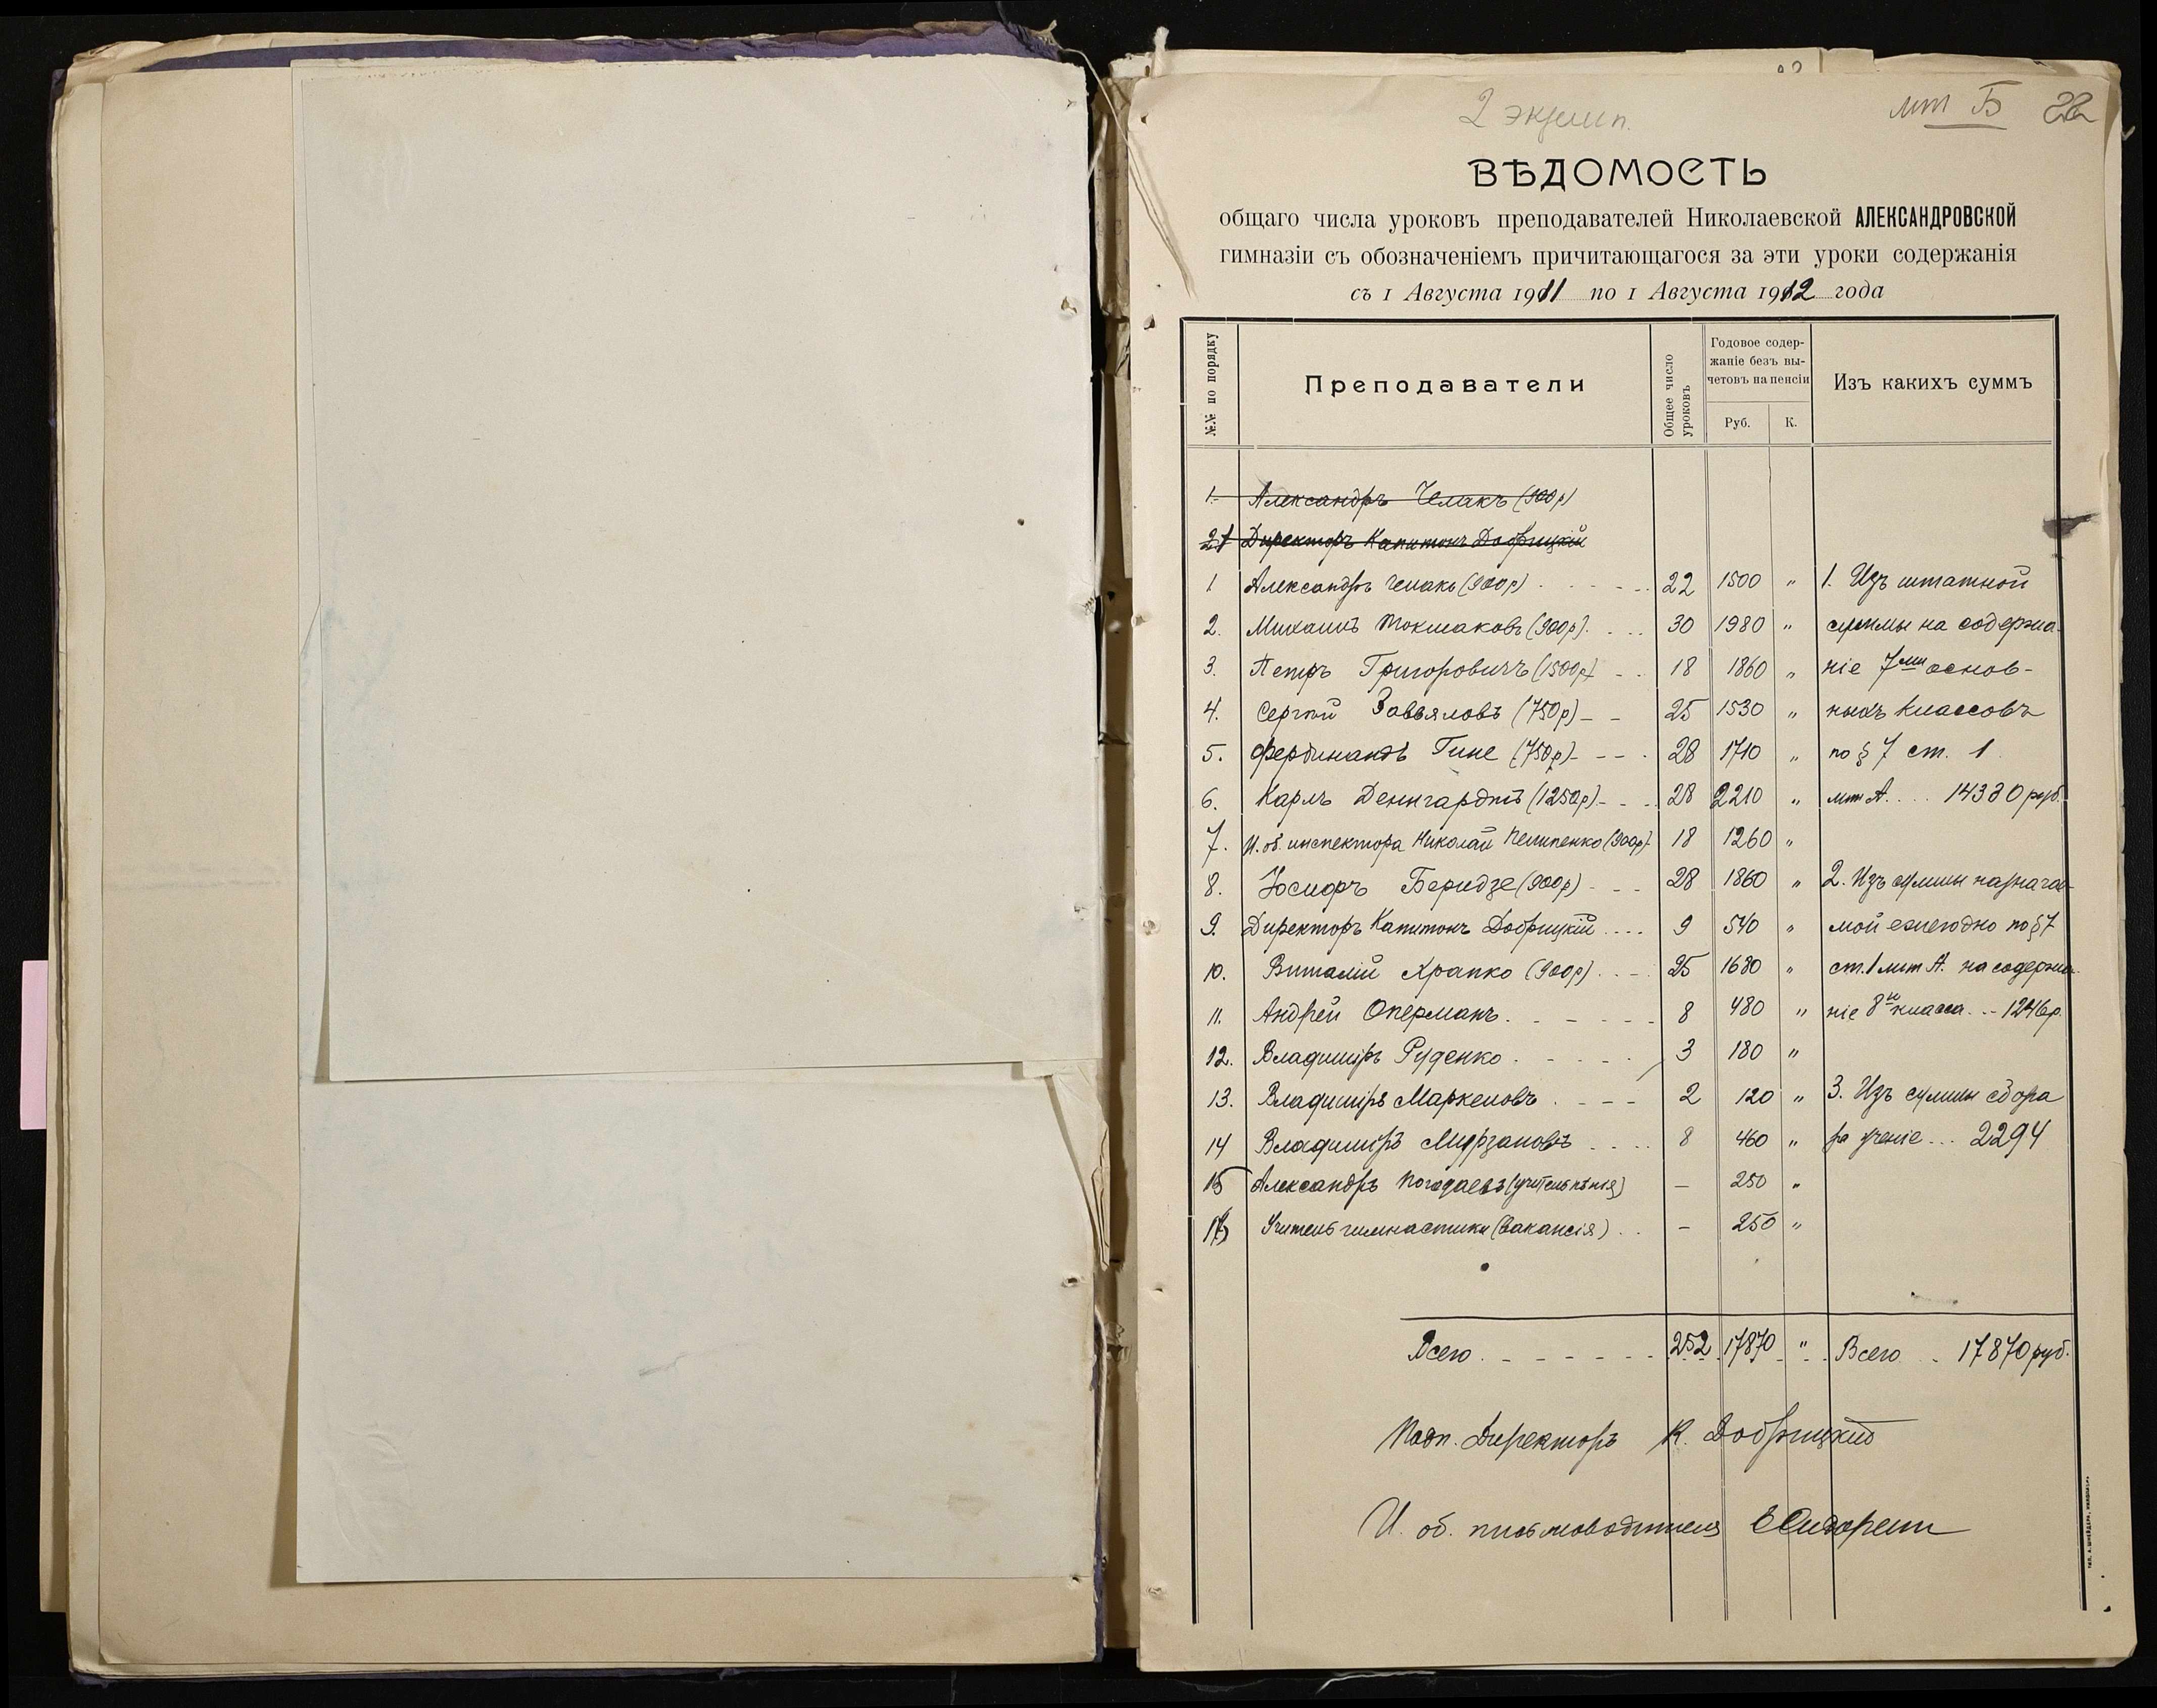 2 экземп.
лит Б 22
ВѢДОМОСТЬ
общаго числа уроковъ преподавателей Николаевской АЛЕКСАНДРОВСКОЙ
гимназіи съ обозначеніемъ причитающагося за эти уроки содержанія
съ 1 Августа 1911 по 1 Августа 1912 года
№№ по порядку
Преподаватели
Общее число уроковъ
Годовое содер-
жаніе безъ вы-
четовъ на пенсіи
Руб. К.
Изъ какихъ суммъ
1. Александръ Чемакъ (900р)
2 1 Директоръ Капитонъ Добрицкій
1 Александръ Чемакъ (900р) 22 1500 " 1. Изъ штатной
2. Михаилъ Токмаковъ (900р) 30 1980 " суммы на содержа-
3. Петръ Григоровичъ (1500р) 18 1860 " ніе 7ми основ-
4. Сергѣй Завьяловъ (750р) 25 1530 " ныхъ классовъ
5. Фердинандъ Гине (750р) 28 1710 " по § 7 ст. 1
6. Карлъ Денгардтъ (1250р) 28 2210 " лит А.... 14330 руб.
7. И. об. инспектора Николай Пелипенко (900р) 18 1260 "
8. Іосифъ Беридзе (900р) 28 1860 " 2. Изъ суммы назначае-
9. Директоръ Капитонъ Добрицкій.... 9 540 " мой ежегодно по § 7
10. Виталій Храпко (900р) 25 1680 " ст. 1 лит А. на содержа-
11. Андрей Оперманъ 8 480 " ніе 8го класса... 1246р.
12. Владиміръ Руденко 3 180 "
13. Владиміръ Маркеловъ 2 120 " 3. Изъ суммы сбора
14 Владиміръ Мирзановъ 8 460 " за ученіе... 2294
15 Александръ Погодаевъ (учитель пѣнія) — 250 "
Учитель гимнастики (вакансія) — 250 "
Всего 252 17870 " Всего 17870 руб.
Подп. Директоръ К. Добрицкій
И. об. письмоводителя